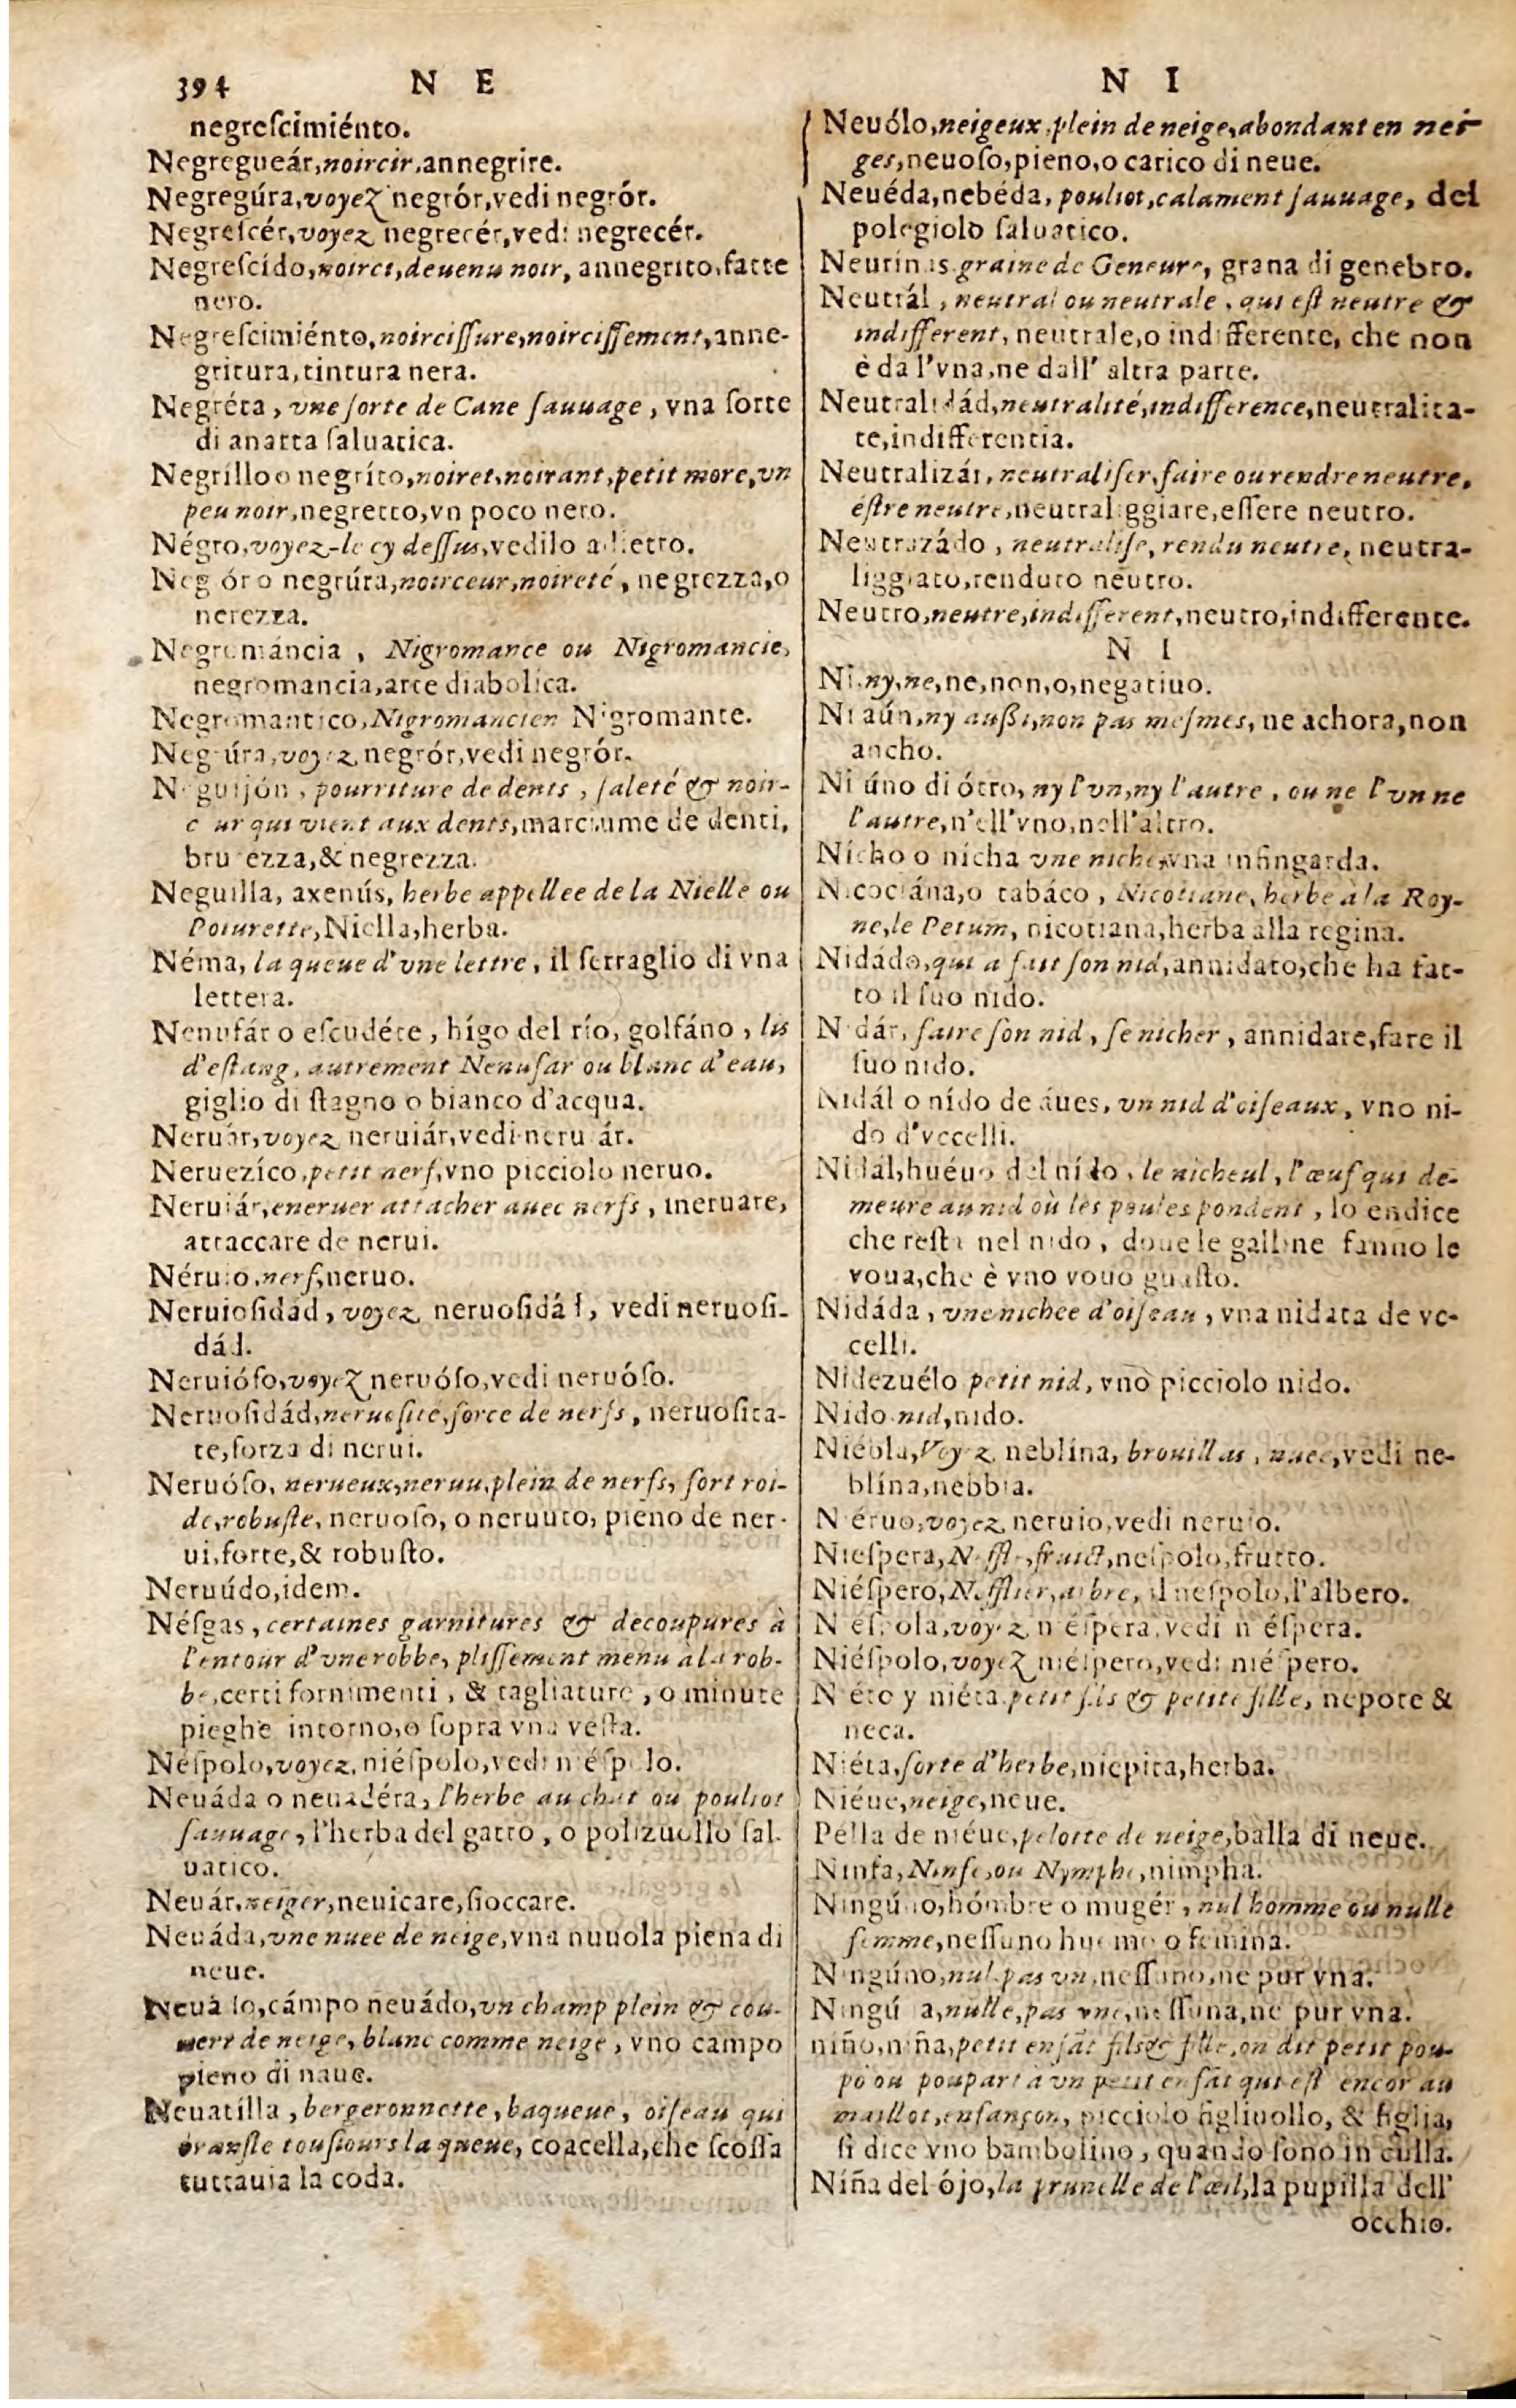 394 N E
negreſcimiénto.
Negregueár,noircir,annegrire.
Negregúra,voyez negrór,vedi negrór.
Negreſcér,voyez negrecér,vedi negrecér.
Negreſcído,noirci,deuenu noir, annegrito,fatte
nero.
Negreſcimiénto,noirciſſure,noirciſſement,anne-
gritura,tintura nera.
Negréta, vne ſorte de Cane ſauuage, vna ſorte
di anatta ſaluatica.
Negríllo o negríto,noiret,noirant,petit more,vn
peu noir,negretto,vn poco nero.
Négro,voyez-le cy deſſus,vedilo adietro.
Neg ór o negrúra,noirceur,noireté, negrezza,o
nerezza.
Negrománcia, Nigromance ou Nigromancie,
negromancia,arte diabolica.
Negromantico,Nigromancien Nigromante.
Negrúra,voyez negrór,vedi negrór.
Neguijón, pourriture de dents, ſaleté & noir-
c ur qui vient aux dents,marciume de denti,
bru ezza,& negrezza.
Neguilla, axenús, herbe appellee de la Nielle ou
Poiurette,Niella,herba.
Néma, la queue d'vne lettre, il ſerraglio di vna
lettera.
Nenufár o eſcudéte, hígo del río, golfáno, lis
d'eſtang, autrement Nenufar ou blanc d'eau,
giglio di ſtagno o bianco d'acqua.
Neruár,voyez neruiár,vedi neruiár.
Neruezíco,petit nerf,vno picciolo neruo.
Neruiár,eneruer attacher auec nerfs, ineruare,
attaccare de nerui.
Néruio,nerf,neruo.
Neruiosidád, voyez neruoſidád, vedi neruoſi-
dád.
Neruióſo,voyez neruóſo,vedi neruóſo.
Neruoſidád,neruoſité,force de nerfs, neruoſita-
te,forza di nerui.
Neruóſo, nerueux,neruu,plein de nerfs, fort roi-
de,robuſte, neruoſo, o neruuto, pieno de ner-
ui,forte,& robuſto.
Neruúdo,idem.
Néſgas, certaines garnitures & decoupures à
l'entour d'vne robbe, pliſſement menu à la rob-
be,certi fornimenti, & tagliature, o minute
pieghe intorno,o ſopra vna veſta.
Néſpolo,voyez niéſpolo,vedi niéſpolo.
Neuáda o neuadéra, l'herbe au chat ou pouliot
ſauuage, l'herba del gatto, o polizuollo ſal-
uatico.
Neuár,neiger,neuicare,fioccare.
Neuáda,vne nuee de neige,vna nuuola piena di
neue.
Neuá lo,cámpo neuádo,vn champ plein & cou-
uert de neige, blanc comme neige, vno campo
pieno di naue.
Neuatílla, bergeronnette, baqueue, oiſeau qui
branſle touſiours la queue, coacella,che ſcoſſa
tuttauia la coda.
N I
Neuólo,neigeux,plein de neige,abondant en nei-
ges,neuoſo,pieno,o carico di neue.
Neuéda,nebéda, pouliot,calament ſauuage, del
polegiolo ſaluatico.
Neurínas graine de Geneure, grana di genebro.
Neutrál, neutral ou neutrale, qui eſt neutre &
indifferent, neutrale,o indifferente, che non
è da l'vna,ne dall' altra parte.
Neutralidád,neutralité,indifference,neutralita-
te,indifferentia.
Neutralizár, neutraliſer,faire ou rendre neutre,
éſtre neutre,neutraliggiare,eſſere neutro.
Neutrazádo, neutraliſe, rendu neutre, neutra-
liggiato,renduto neutro.
Neutro,neutre,indifferent,neutro,indifferente.
N I
Ni,ny,ne,ne,non,o,negatiuo.
Ni aún,ny außi,non pas meſmes, ne achora,non
ancho.
Ni úno di ótro, ny l'vn,ny l'autre, ou ne l'vn ne
l'autre,n'ell'vno,nell'altro.
Nícho o nícha vne niche,vna infingarda.
Nicociána,o tabáco, Nicotiane, herbe à la Roy-
ne,le Petum, nicotiana,herba alla regina.
Nidádo,qui a fait ſon nid,annidato,che ha fat-
to il ſuo nido.
Nidár, faire ſon nid, ſe nicher, annidare,fare il
ſuo nido.
Nidál o nído de áues, vn nid d'oiſeaux, vno ni-
do d'vccelli.
Nidál,huéuo del nído, le nicheul, l'œuf qui de-
meure au nid où les poules pondent, lo endice
che reſta nel nido, doue le galline fanno le
voua,che è vno vouo guaſto.
Nidáda, vne nichee d'oiſeau, vna nidata de vc-
celli.
Nidezuélo petit nid, vno picciolo nido.
Nido nid,nido.
Niébla,Voyez neblína, brouillas, nuee,vedi ne-
blína,nebbia.
N éruo,voyez neruio,vedi neruio.
Nieſpera,Neffle,fruict,neſpolo,frutto.
Niéſpero,Nefflier,arbre, il neſpolo,l'albero.
Niéſpola,voyez niéſpera,vedi niéſpera.
Niéſpolo,voyez niéſpero,vedi niéſpero.
Niéto y niéta petit fils & petite fille, nepote &
neca.
Niéta,ſorte d'herbe,niepita,herba.
Niéue,neige,neue.
Pélla de niéue,pelotte de neige,balla di neue.
Ninfa,Ninfe,ou Nymphe,nimpha.
Ningúno,hómbre o mugér, nul homme ou nulle
femme,neſſuno huomo o femina.
Ningúno,nul pas vn,neſſuno,ne pur vna.
Ningúna,nulle,pas vne,neſſuna,ne pur vna.
niño,niña,petit enfãt fils& fille,on dit petit pou-
pó ou poupart à vn petit enfãt qui eſt encor au
maillot,enfançon, picciolo figliuollo, & figlia,
ſi dice vno bambolino, quando ſono in culla.
Níña del ójo,la prunelle de l'œil,la pupilla dell'
occhio.